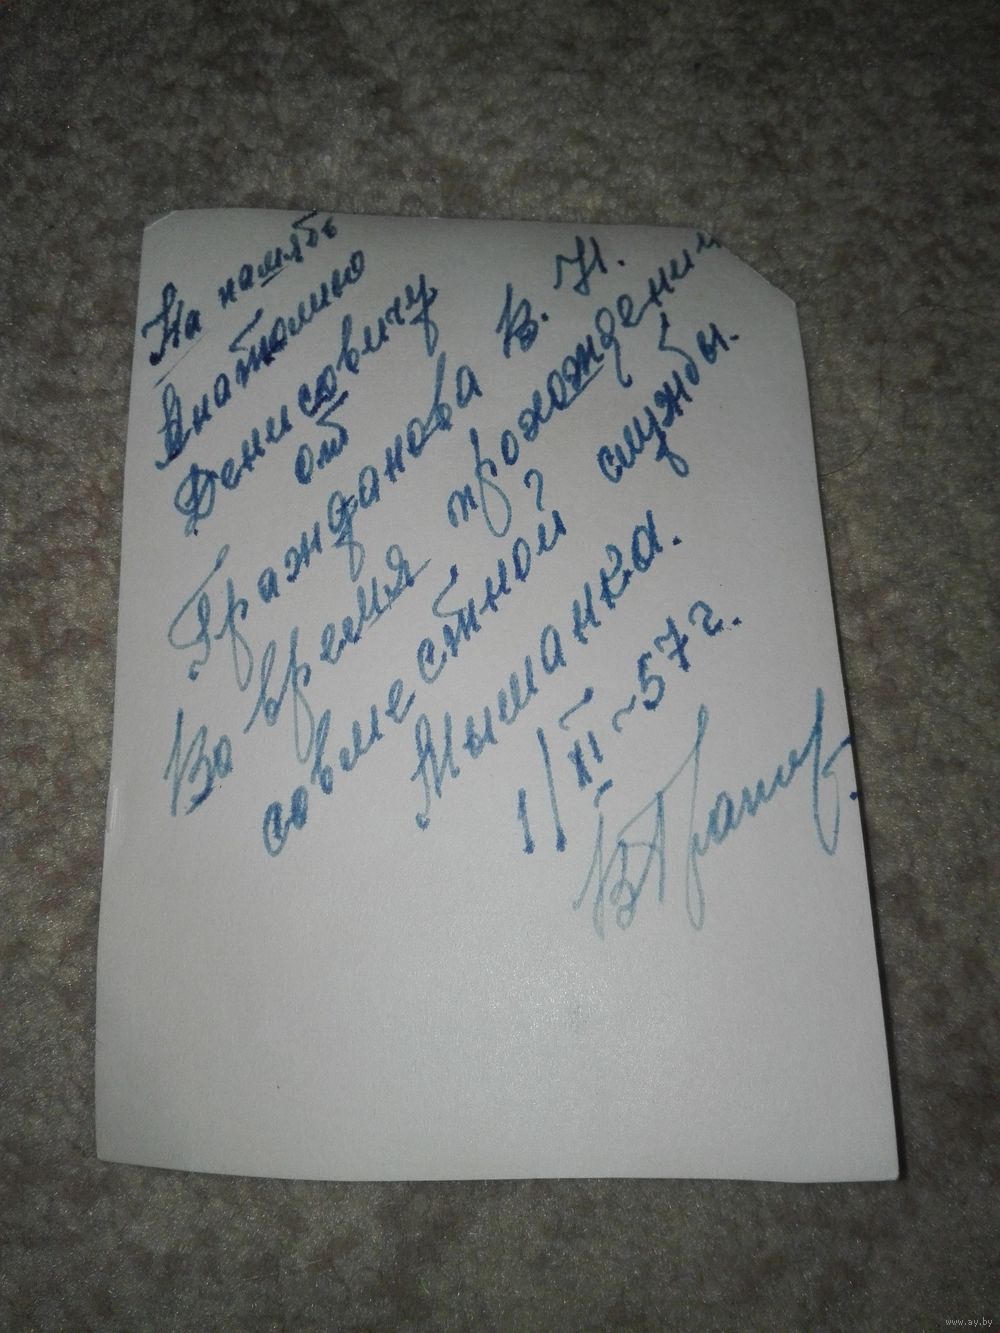 На память
Анатолию
Денисовичу
от
Гражданова В. Н.
Во время прохождении
совместной службы.
Мышанка.
1/XI-57 г.
www.ay.by